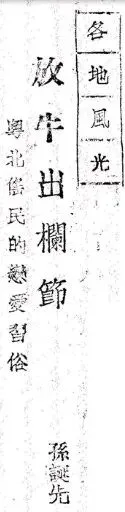 各地風光
放牛出欄節
粵北傜民的戀愛習俗
孫誕先